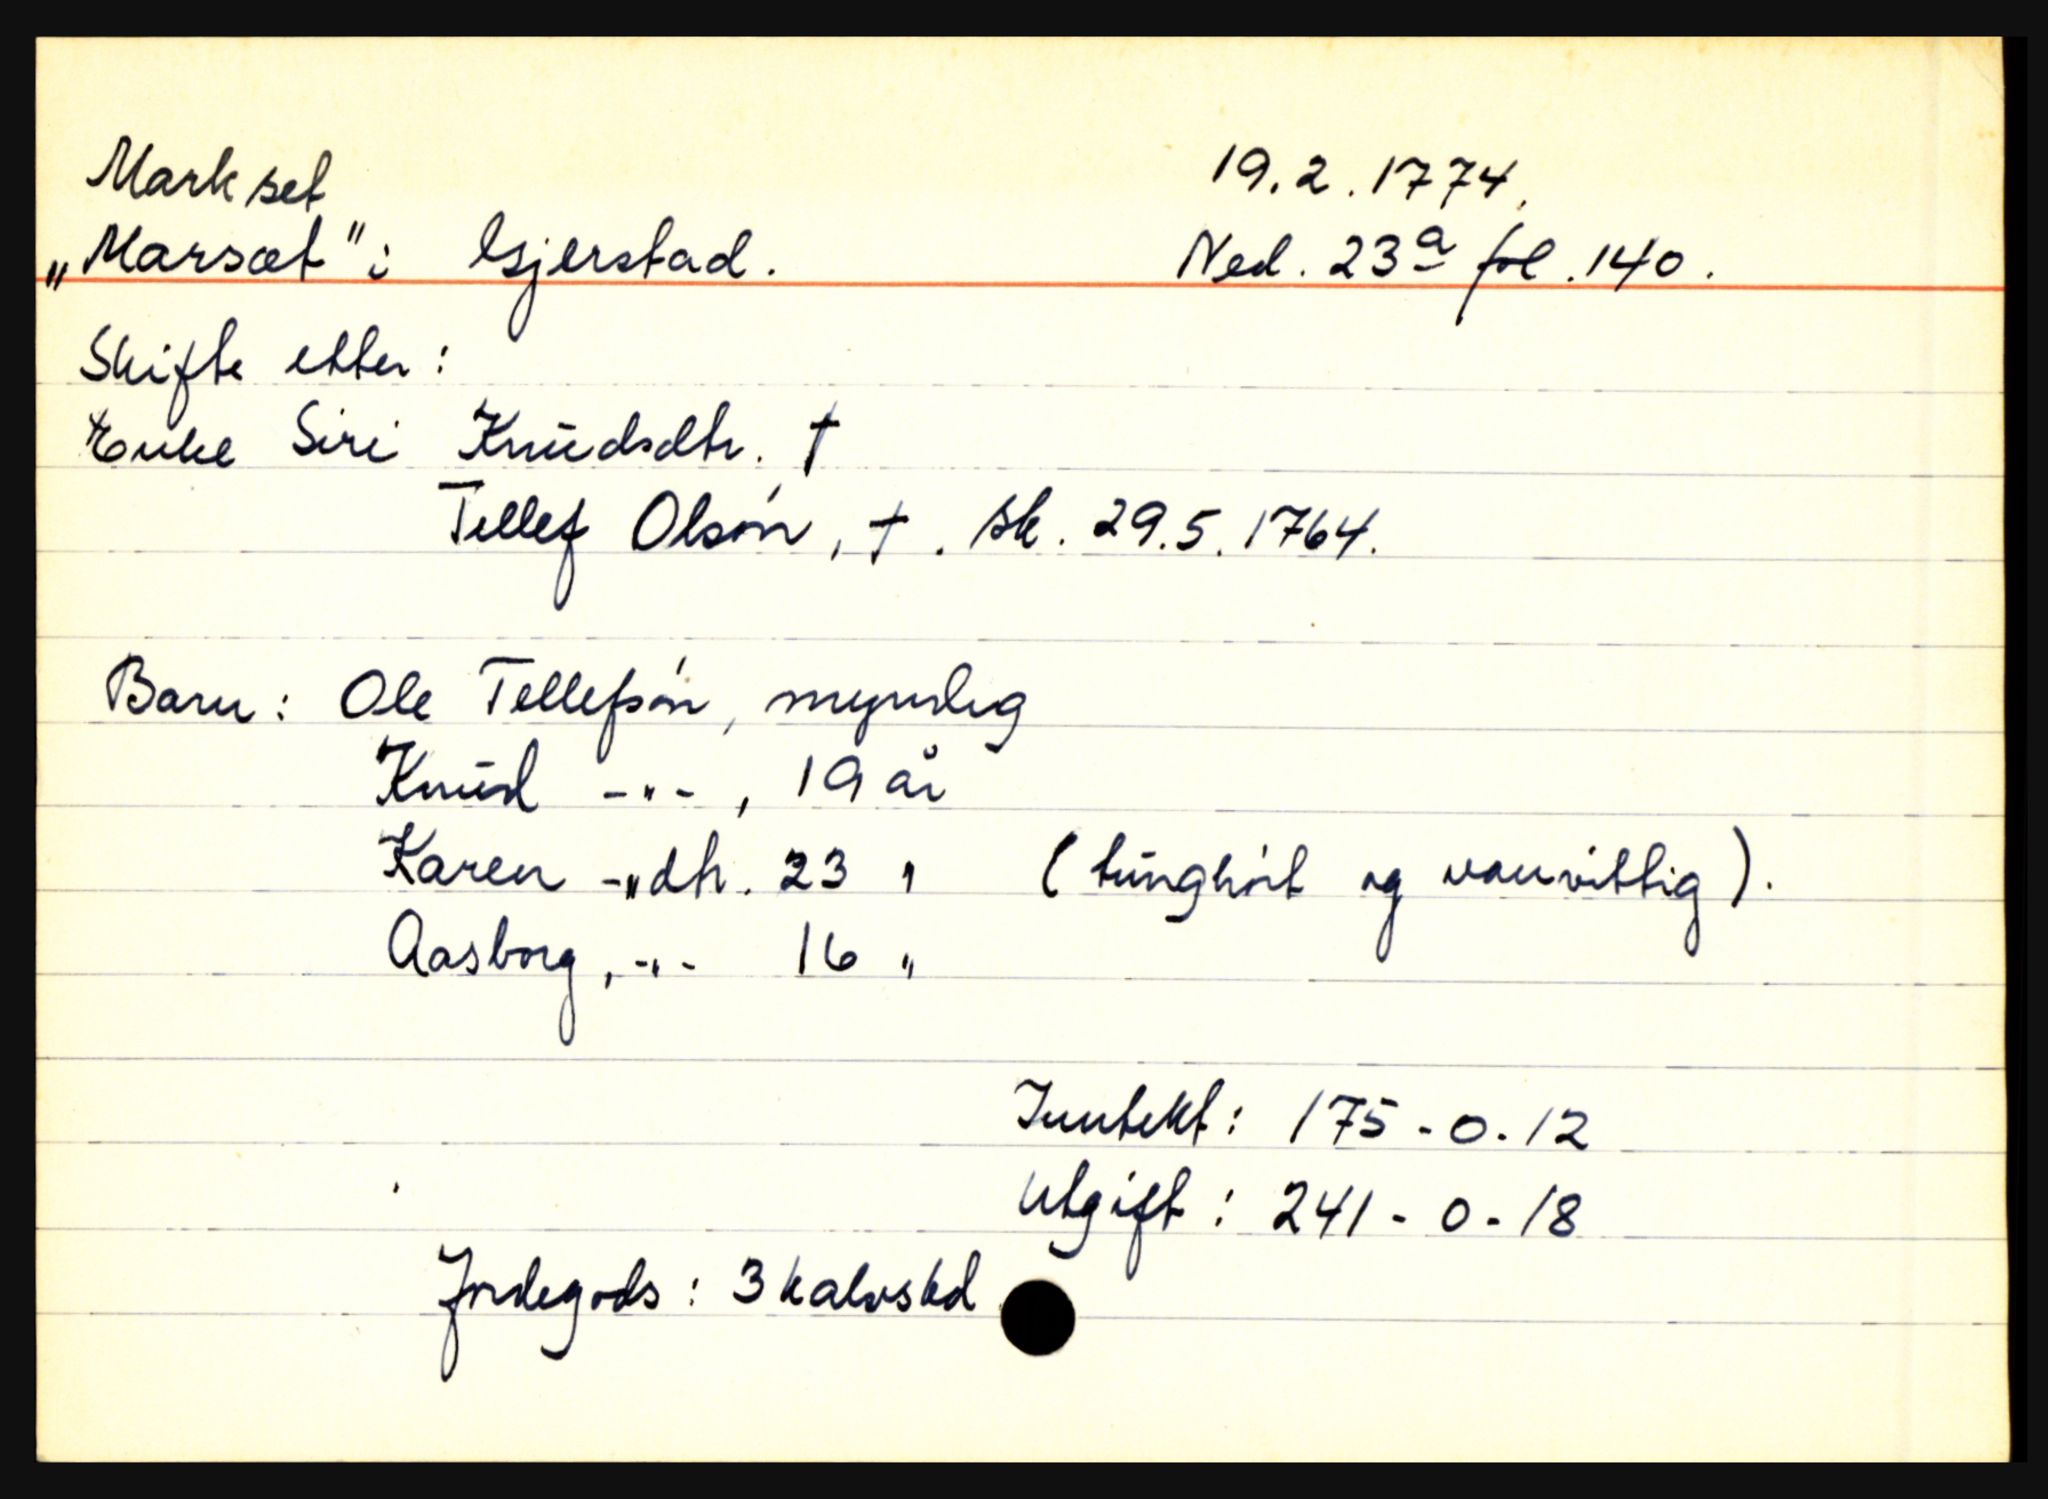 Markset 19.2.1774.
„Marsæt" i Gjerstad. Ned. 23a fol. 140.
Skifte etter:
Enke Siri Knudsdtr. †
Tellef Olsøn, †. sk. 29.5.1764.
Barn: Ole Tellefsøn, myndig
Knud -"-, 19 år
Karen -"dtr. 23 " (tunghørt og vanvittig).
Aasborg, -"- 16 "
Inntekt: 175-0-12
Utgift: 241-0-18
Jordegods: 3 kalvskd